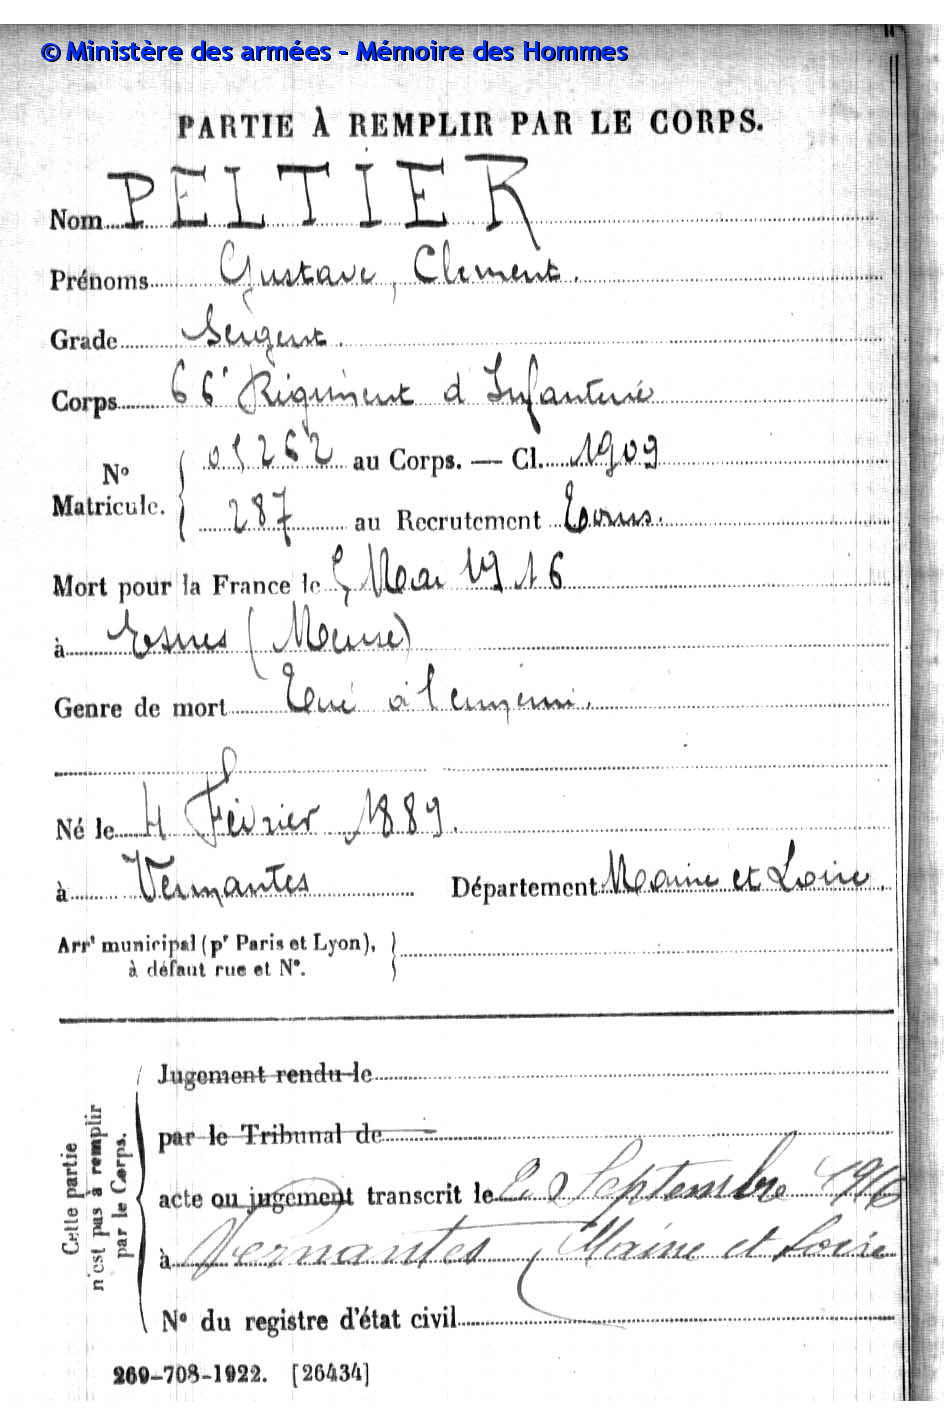 © Ministère des armées - Mémoire des Hommes
PARTIE À REMPLIR PAR LE CORPS.
Nom PELTIER
Prénoms Gustave, Clement.
Grade Sergent.
Corps 66e Régiment d'Infanterie
No Matricule. 01262 au Corps. — Cl. 1909
287 au Recrutement Tours.
Mort pour la France le 5 Mai 1916
à Esnes (Meuse)
Genre de mort Tué à l'ennemi.
Né le 4 Février 1889.
à Vernantes Département Maine et Loire.
Arrt municipal (pr Paris et Lyon),
à défaut rue et No.
Cette partie
n'est pas à remplir
par le Corps.
Jugement rendu le
par le Tribunal de
acte ou jugement transcrit le 2 Septembre 1916
à Vernantes, Maine et Loire
No du registre d'état civil
269-708-1922. [26434]